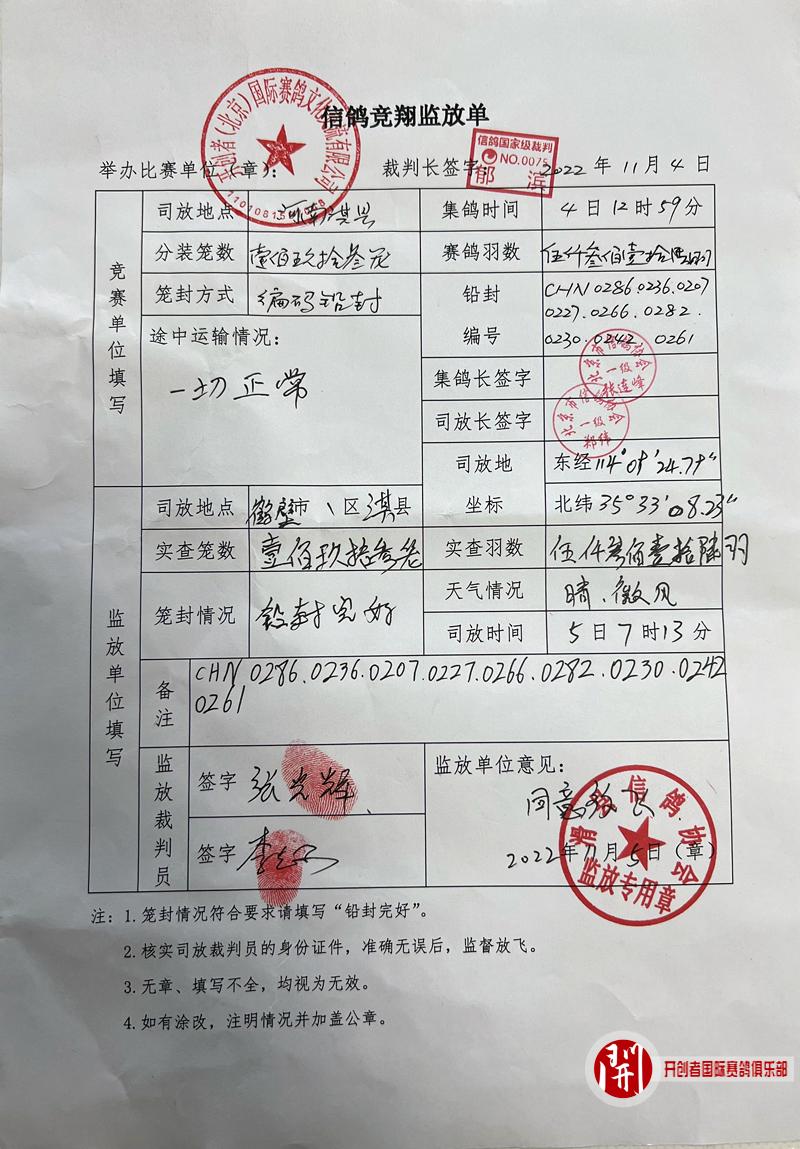 信鸽竞翔监放单
开创者(北京)国际赛鸽文化交流有限公司
信鸽国家级裁判
NO.0075
郁滨
举办比赛单位（章）： 裁判长签字： 2022年11月4日
竞赛单位填写
司放地点 河南淇县 集鸽时间 4日12时59分
分装笼数 壹佰玖拾叁笼 赛鸽羽数 伍仟叁佰壹拾陆羽
笼封方式 编码铅封 铅封编号 CHN 0286.0236.0207
0227.0266.0282.
0230.0242.0261
途中运输情况：
一切正常
集鸽长签字 北京市信鸽协会 一级 张连峰
司放长签字 北京市信鸽协会 一级 郑伟
司放地坐标 东经114°09′24.79″
北纬35°33′08.23″
监放单位填写
司放地点 鹤壁市、区淇县
实查笼数 壹佰玖拾叁笼 实查羽数 伍仟叁佰壹拾陆羽
笼封情况 铅封完好 天气情况 晴、微风
司放时间 5日7时13分
备注 CHN 0286.0236.0207.0227.0266.0282.0230.0242
0261
监放裁判员 签字 张光辉
签字
监放单位意见：
同意放飞.
2022年11月5日（章）
信鸽协会
监放专用章
注：1.笼封情况符合要求请填写“铅封完好”。
2.核实司放裁判员的身份证件，准确无误后，监督放飞。
3.无章、填写不全，均视为无效。
4.如有涂改，注明情况并加盖公章。
開 开创者国际赛鸽俱乐部